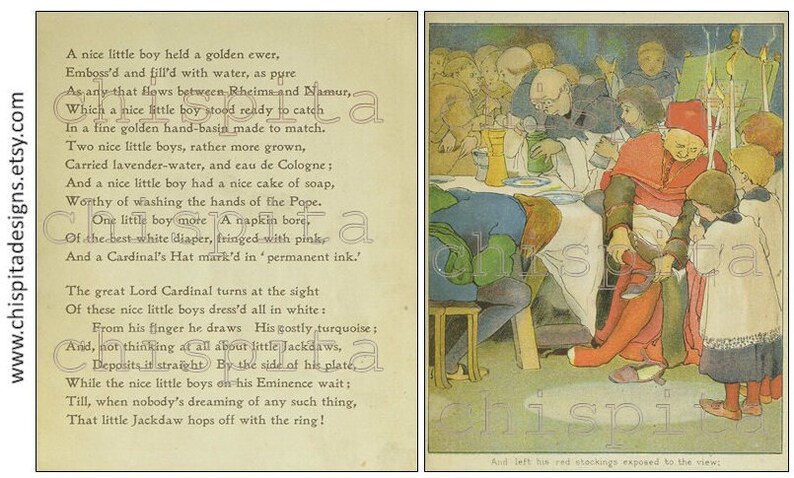 www.chispitadesigns.etsy.com
A nice little boy held a golden ewer,
Emboss'd and fill'd with water, as pure
As any that flows between Rheims and Namur,
Which a nice little boy stood ready to catch
In a fine golden hand-basin made to match.
Two nice little boys, rather more grown,
Carried lavender-water, and eau de Cologne;
And a nice little boy had a nice cake of soap,
Worthy of washing the hands of the Pope.
One little boy more A napkin bore,
Of the best white diaper, fringed with pink,
And a Cardinal's Hat mark'd in 'permanent ink.'
The great Lord Cardinal turns at the sight
Of these nice little boys dress'd all in white:
From his finger he draws His costly turquoise;
And, not thinking at all about little Jackdaws,
Deposits it straight By the side of his plate,
While the nice little boys on his Eminence wait;
Till, when nobody's dreaming of any such thing,
That little Jackdaw hops off with the ring!
chispita
chispita
chispita
chispita
chispita
chispita
And left his red stockings exposed to the view;